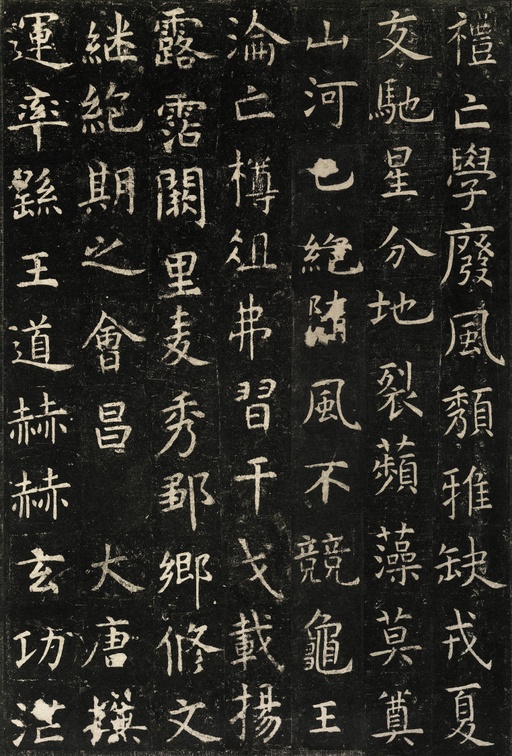 禮亡學廢風頹雅缺戎夏
交馳星分地裂蘋藻莫奠
山河已絕隋風不競龜玉
淪亡樽俎弗習干戈載揚
露霑闕里麦秀鄒鄉脩文
継絕期之會昌 大唐撰
運率繇王道赫赫玄功茫